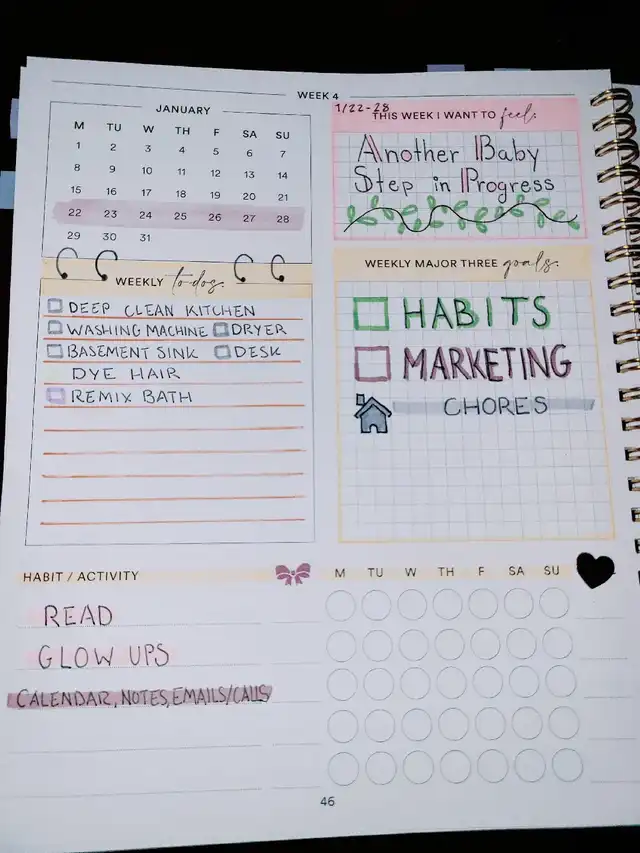 WEEK 4
JANUARY
M TU W TH F SA SU
1 2 3 4 5 6 7
8 9 10 11 12 13 14
15 16 17 18 19 20 21
22 23 24 25 26 27 28
29 30 31
1/22-28
THIS WEEK I WANT TO feel:
Another Baby
Step in Progress
WEEKLY to-dos:
DEEP CLEAN KITCHEN
WASHING MACHINE DRYER
BASEMENT SINK DESK
DYE HAIR
REMIX BATH
WEEKLY MAJOR THREE goals:
HABITS
MARKETING
CHORES
HABIT / ACTIVITY M TU W TH F SA SU
READ
GLOW UPS
CALENDAR, NOTES, EMAILS/CALLS
46